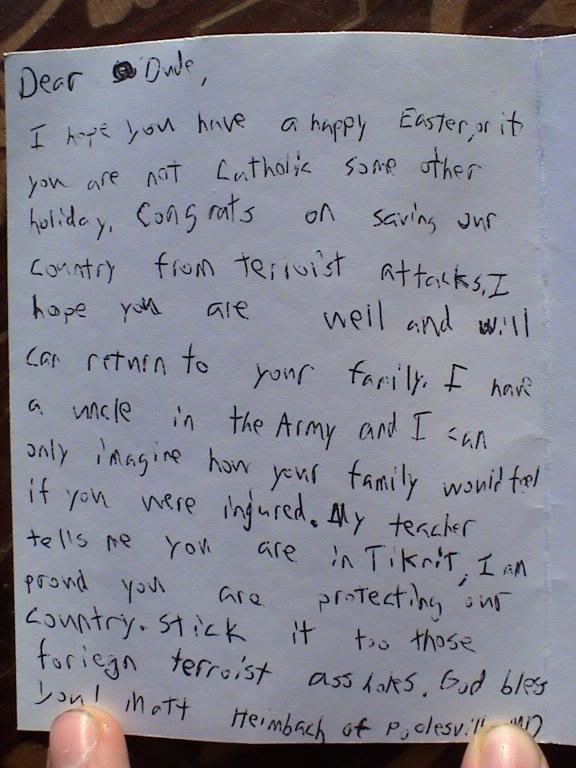 Dear Dude,
I hope you have a happy Easter, or if
you are not Catholic some other
holiday. Congrats on saving our
country from terroist attacks. I
hope you are well and will
can return to your family. I have
a uncle in the Army and I can
only imagine how your family would feel
if you were injured. My teacher
tells me you are in Tikrit, I am
proud you are protecting our
country. Stick it too those
foriegn terroist ass holes. God bless
you! Matt Heimbach of Poolesville MD